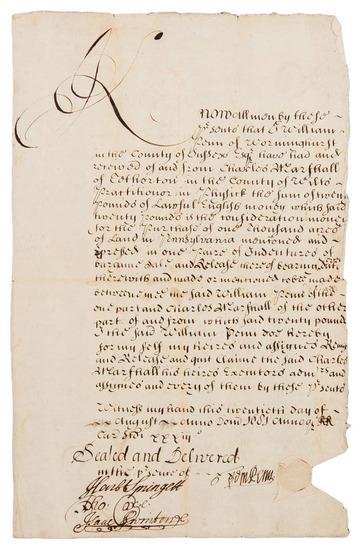 KNOW all men by these
Psents that I William
Penn of Worminghurst
in the County of Sussex Esqr have had and
receved of and from Charles Marshall
of Tetherton in the County of Wilts
Practitionor in Phisick the sum of twenty
Pounds of Lawful English money which said
twenty Pounds is the consideration money
for the Purchase of one Thousand acres
of Land in Pensylvania mentioned and
Exp̄ressed in one Paire of Indentures of
bargaine Sale and Release thereof bearing date
therewith and made or mentioned to be made
betweene mee the said William Penn of the
one part and Charles Marshall of the other
part of and from which said twenty Pound
I the said William Penn doe hereby
for my self my heires and assignes Remise
and Release and quit Claime the said Charles
Marshall his heires Executors admrs and
assignes and every of them by these Psents
Witness my hand this twentieth day of
August Anno Dom 1681 Annoq RR
Car Sdi XXXiii
Sealed and Delivered
in the Psence of Wm Penn
Harbt Springett
Tho: Coxe
Isaac Swinton